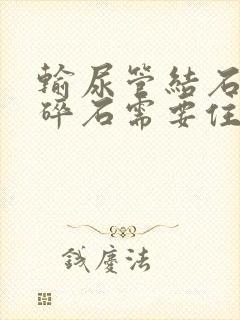 輸尿管結石
碎石需要住
鐵慶法